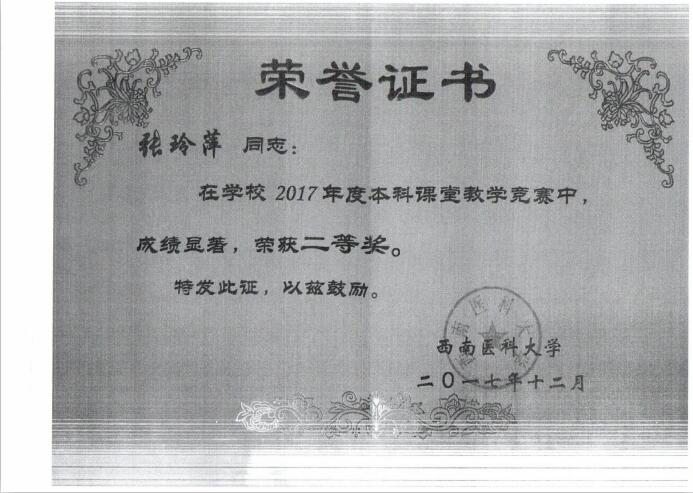 荣誉证书
张玲萍 同志：
在学校 2017 年度本科课堂教学竞赛中，
成绩显著，荣获二等奖。
特发此证，以兹鼓励。
西南医科大学
西南医科大学
二〇一七年十二月